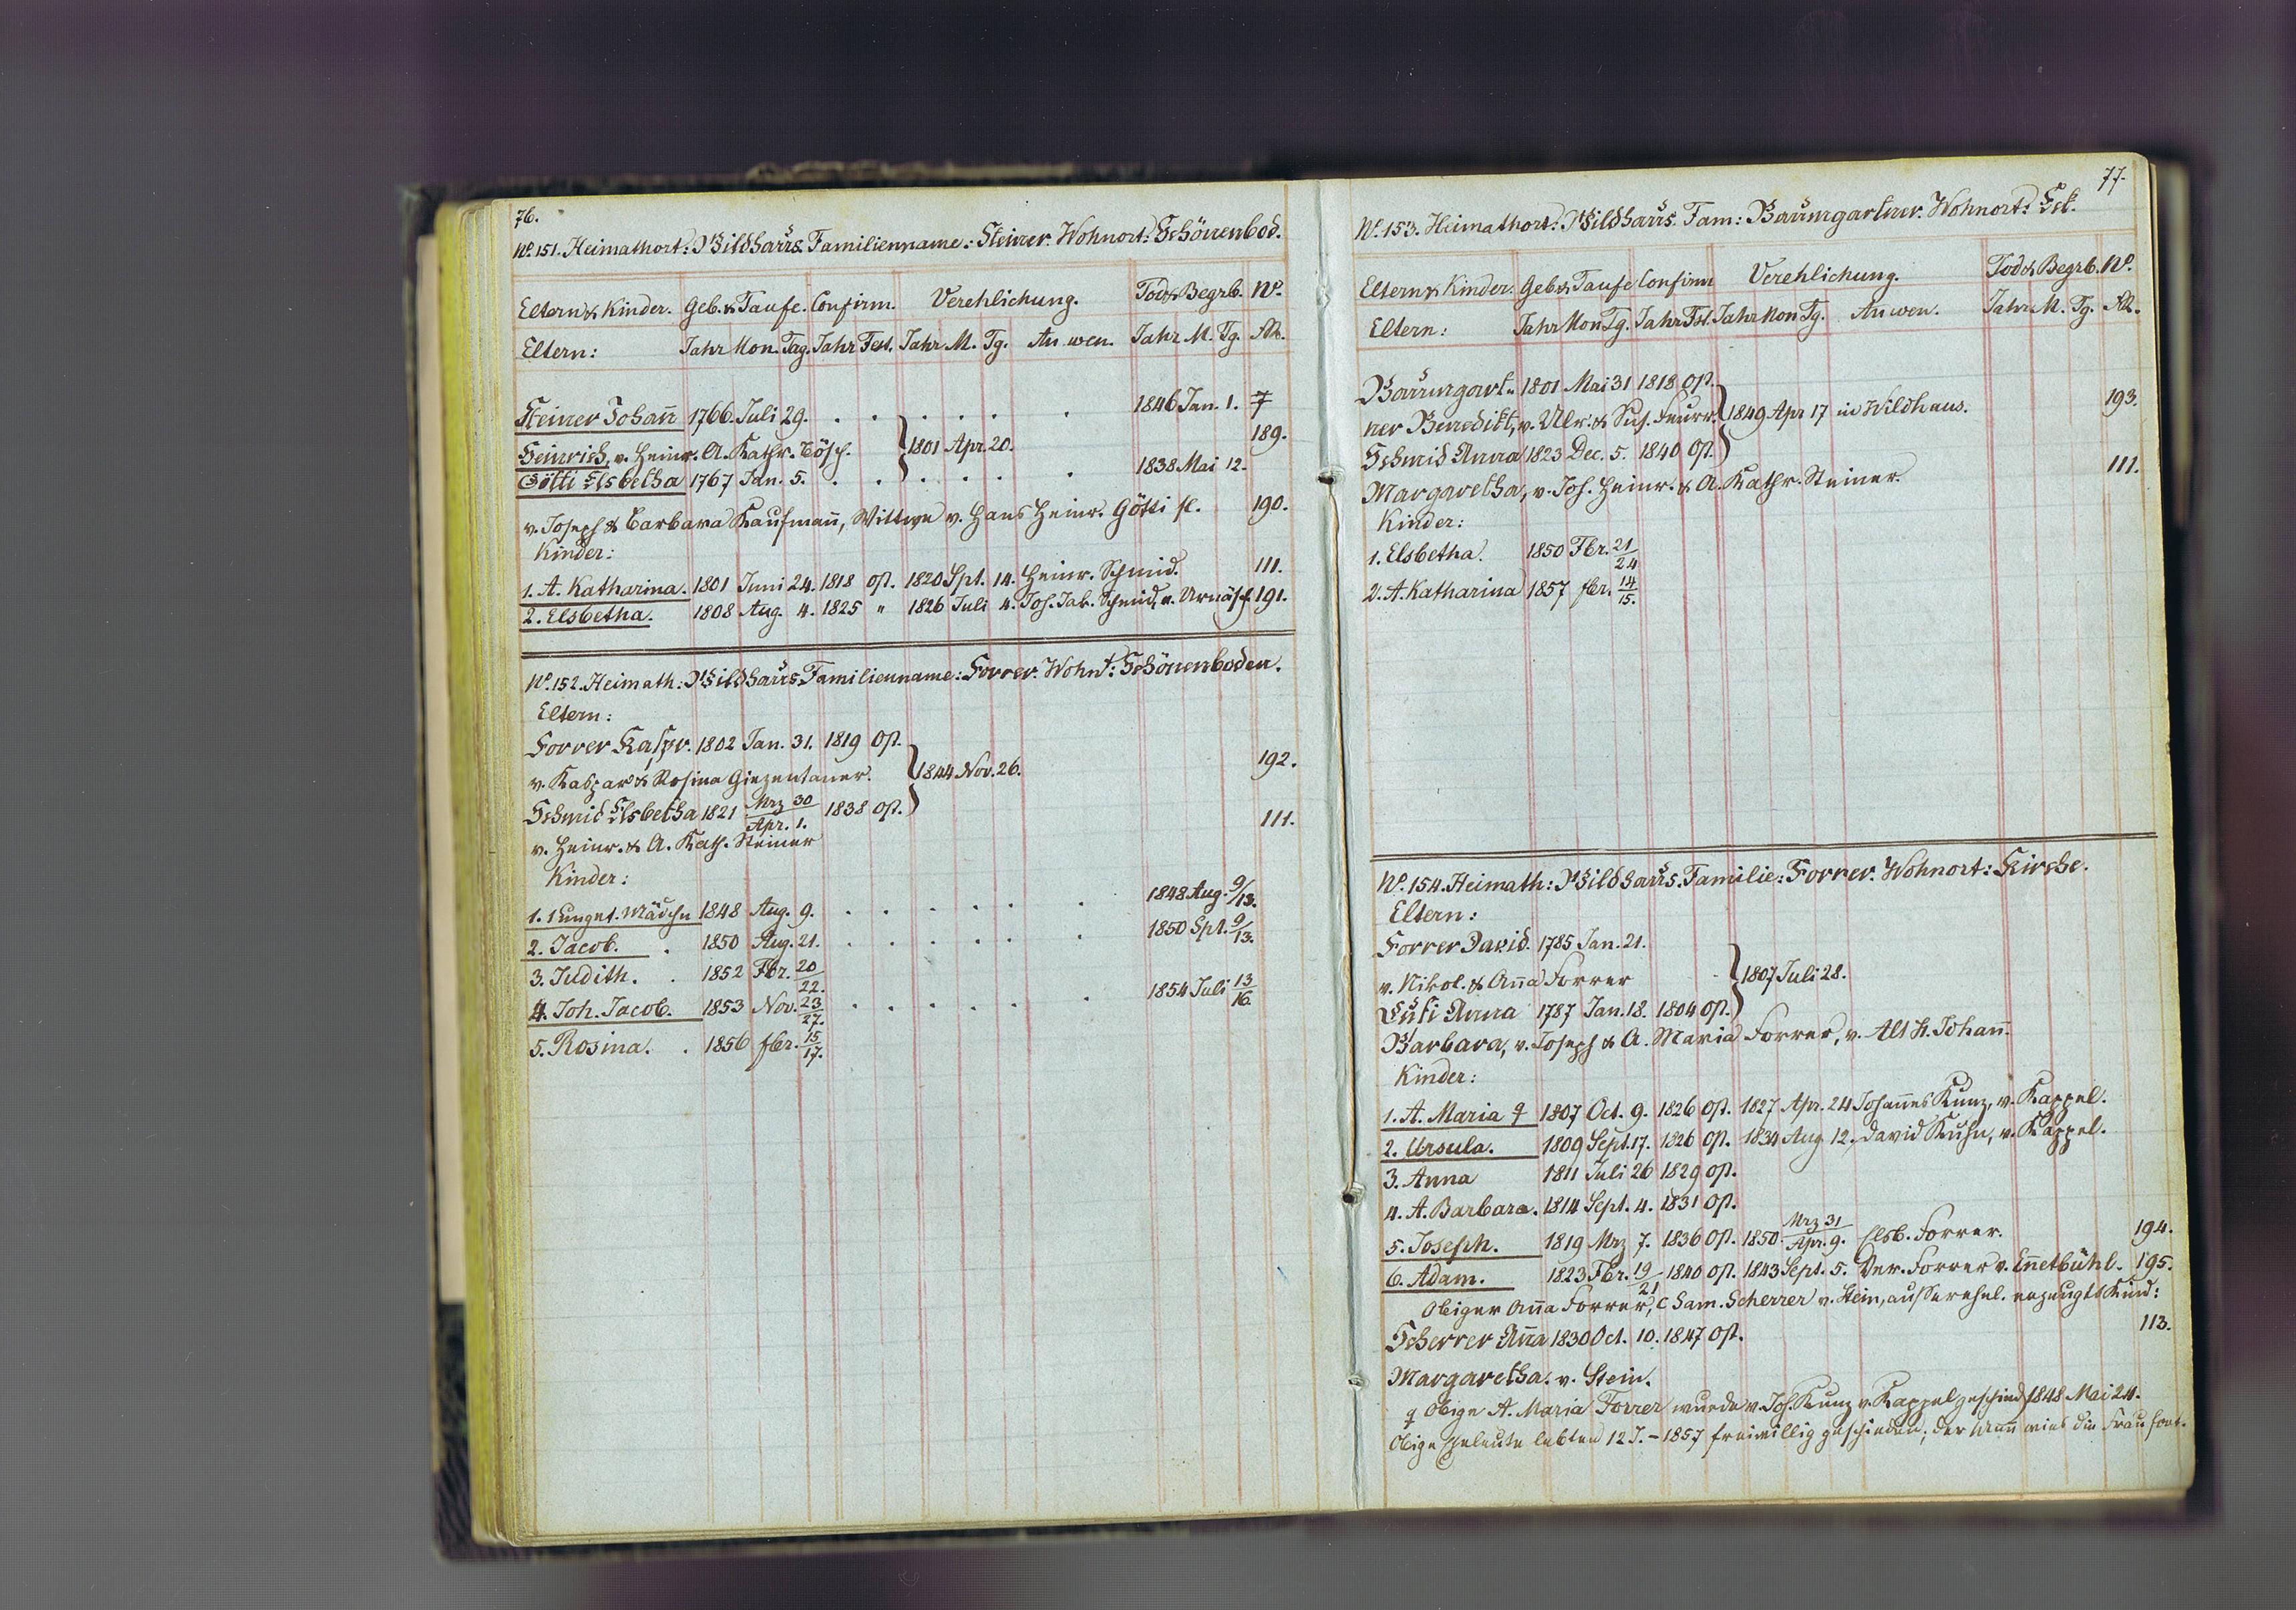 76.
No. 151. Heimathort: Wildhaus. Familienname: Steiner. Wohnort: Schönenbod.
Eltern & Kinder. Geb. & Taufe. Confirm. Verehlichung. Tod & Begrb. No.
Eltern: Jahr Mon. Tag. Jahr Fest. Jahr M. Tg. An wen. Jahr M. Tg.
Steiner Johañ 1766 Juli 29. . . . . . . 1846 Jan. 1. 7
Heinrich, v. Heinr. A. Kathr. Bösch. } 1801 Apr. 20. 189.
Götti Elsbetha 1767 Jan. 5. . . . . . . 1838 Mai 12.
v. Joseph & Barbara Kaufmañ, Wittwe v. Hans Heinr. Götti sl. 190.
Kinder:
1. A. Katharina. 1801 Juni 24. 1818 Ost. 1820 Spt. 14. Heinr. Schmid. 111.
2. Elsbetha. 1808 Aug. 4. 1825 " 1826 Juli 4. Joh. Jak. Schmid, v. Urnäsch 191.
No. 152. Heimath: Wildhaus. Familienname: Forrer. Wohnt: Schönenboden.
Eltern:
Forrer Kaspr. 1802 Jan. 31. 1819 Ost.
v. Kaspar & Rosina Giezentaner. } 1844 Nov. 26. 192.
Schmid Elsbetha 1821 Mrz 30/Apr. 1. 1838 Ost.
v. Heinr. & A. Kath. Steiner 111.
Kinder:
1. 1 unget. Mädchn 1848 Aug. 9. . . . . . . 1848 Aug. 9/13.
2. Jacob. . 1850 Aug. 21. . . . . . . 1850 Spt. 9/13.
3. Judith. . 1852 Fbr. 20/22.
4. Joh. Jacob. 1853 Nov. 23/27. . . . . . . 1854 Juli 13/16
5. Rosina. . 1856 fbr. 15/17.
77.
No. 153. Heimathort: Wildhaus. Fam: Baumgartner. Wohnort: Eck.
Eltern & Kinder. Geb. & Taufe Confirm Verehlichung. Tod & Begrb. No.
Eltern: Jahr Mon Tg. Jahr Fst. Jahr Mon Tg. An wen. Jahr M. Tg.
Baumgart- 1801 Mai 31 1818 Ost.
ner Benedikt, v. Ulr. & Sus. Feurr. } 1849 Apr 17 in Wildhaus. 193.
Schmid Anna 1823 Dec. 5. 1840 Ost.
Margaretha, v. Joh. Heinr. & A. Kathr. Steiner. 111.
Kinder:
1. Elsbetha. 1850 Fbr. 21/24
2. A. Katharina 1857 fbr. 14/15.
No. 154. Heimath: Wildhaus. Familie: Forrer. Wohnort: Kirche.
Eltern:
Forrer David. 1785 Jan. 21.
v. Nikol. & Aña Forrer } 1807 Juli 28.
Lüti Anna 1787 Jan. 18. 1804 Ost.
Barbara, v. Joseph & A. Maria Forrer, v. Alt St. Johañ.
Kinder:
1. A. Maria q 1807 Oct. 9. 1826 Ost. 1827 Apr. 24 Johannes Kunz, v. Kappel.
2. Ursula. 1809 Sept. 17. 1826 Ost. 1834 Aug 12. David Kuhn, v. Kappel.
3. Anna 1811 Juli 26 1829 Ost.
4. A. Barbara. 1814 Sept. 4. 1831 Ost.
5. Joseph. 1819 Mrz 7. 1836 Ost. 1850. Mrz 31/Apr. 9. Elsb. Forrer. 194.
6. Adam. 1823 Fbr. 19/21 1840 Ost. 1843 Sept. 5. Ver. Forrer v. Eñetbühl. 195.
Obiger Aña Forrer, c Sam. Scherrer v. Stein, ausserehel. erzeugtes Kind:
Scherrer Aña 1830 Oct. 10. 1847 Ost. 113.
Margaretha. v. Stein.
q Obige A. Maria Forrer wurde v. Joh. Kunz v. Kappel geschied 1848 Mai 24.
Obige Eheleute lebten 12 J. – 1857 freiwillig geschieden; der Mañ wies die Frau fort.